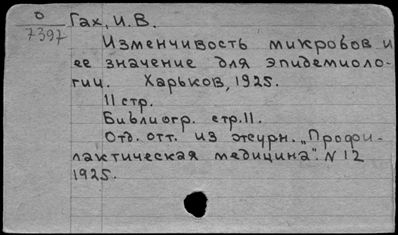 О
7397
Гах, И. В.
Изменчивость микробов и
ее значение для эпидемиоло-
гии. Харьков, 1925.
11 стр.
Библиогр. стр. 11.
Отд. отт. из журн. „Профи-
лактическая медицина". N 12
1925.